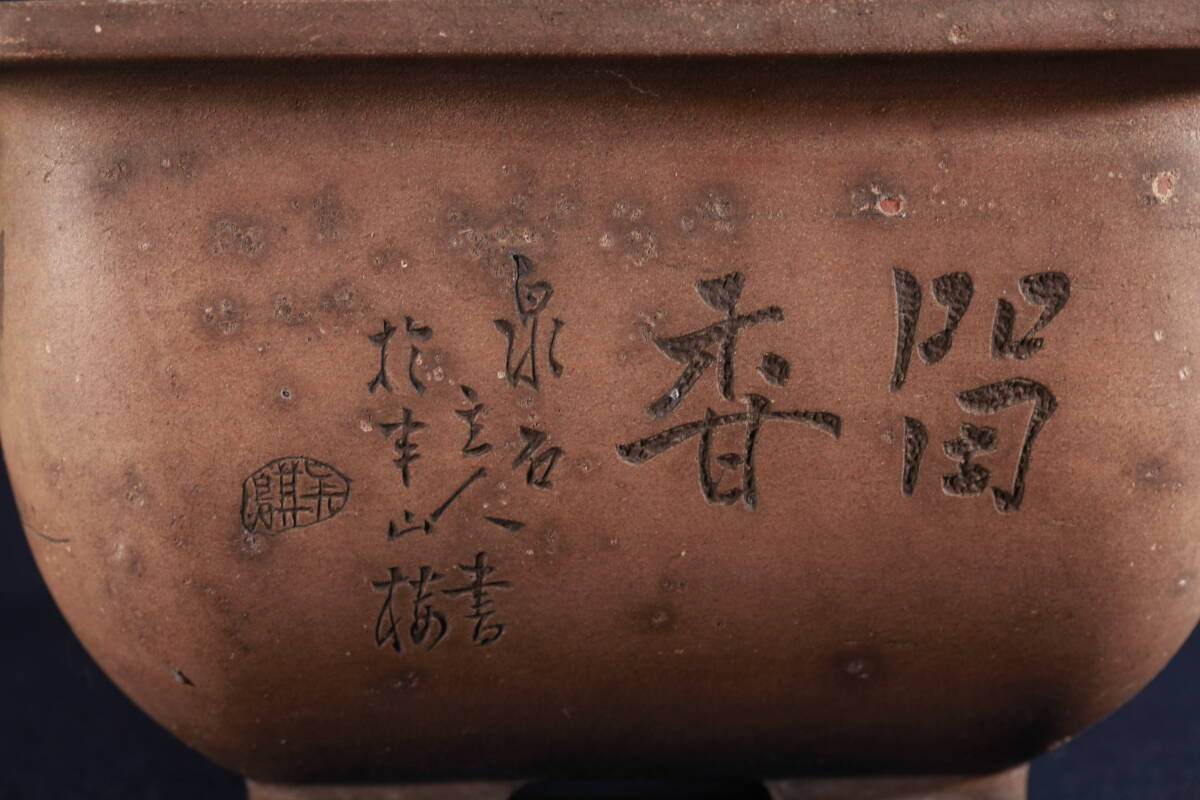 留香
泉石
主人書
於半山梅